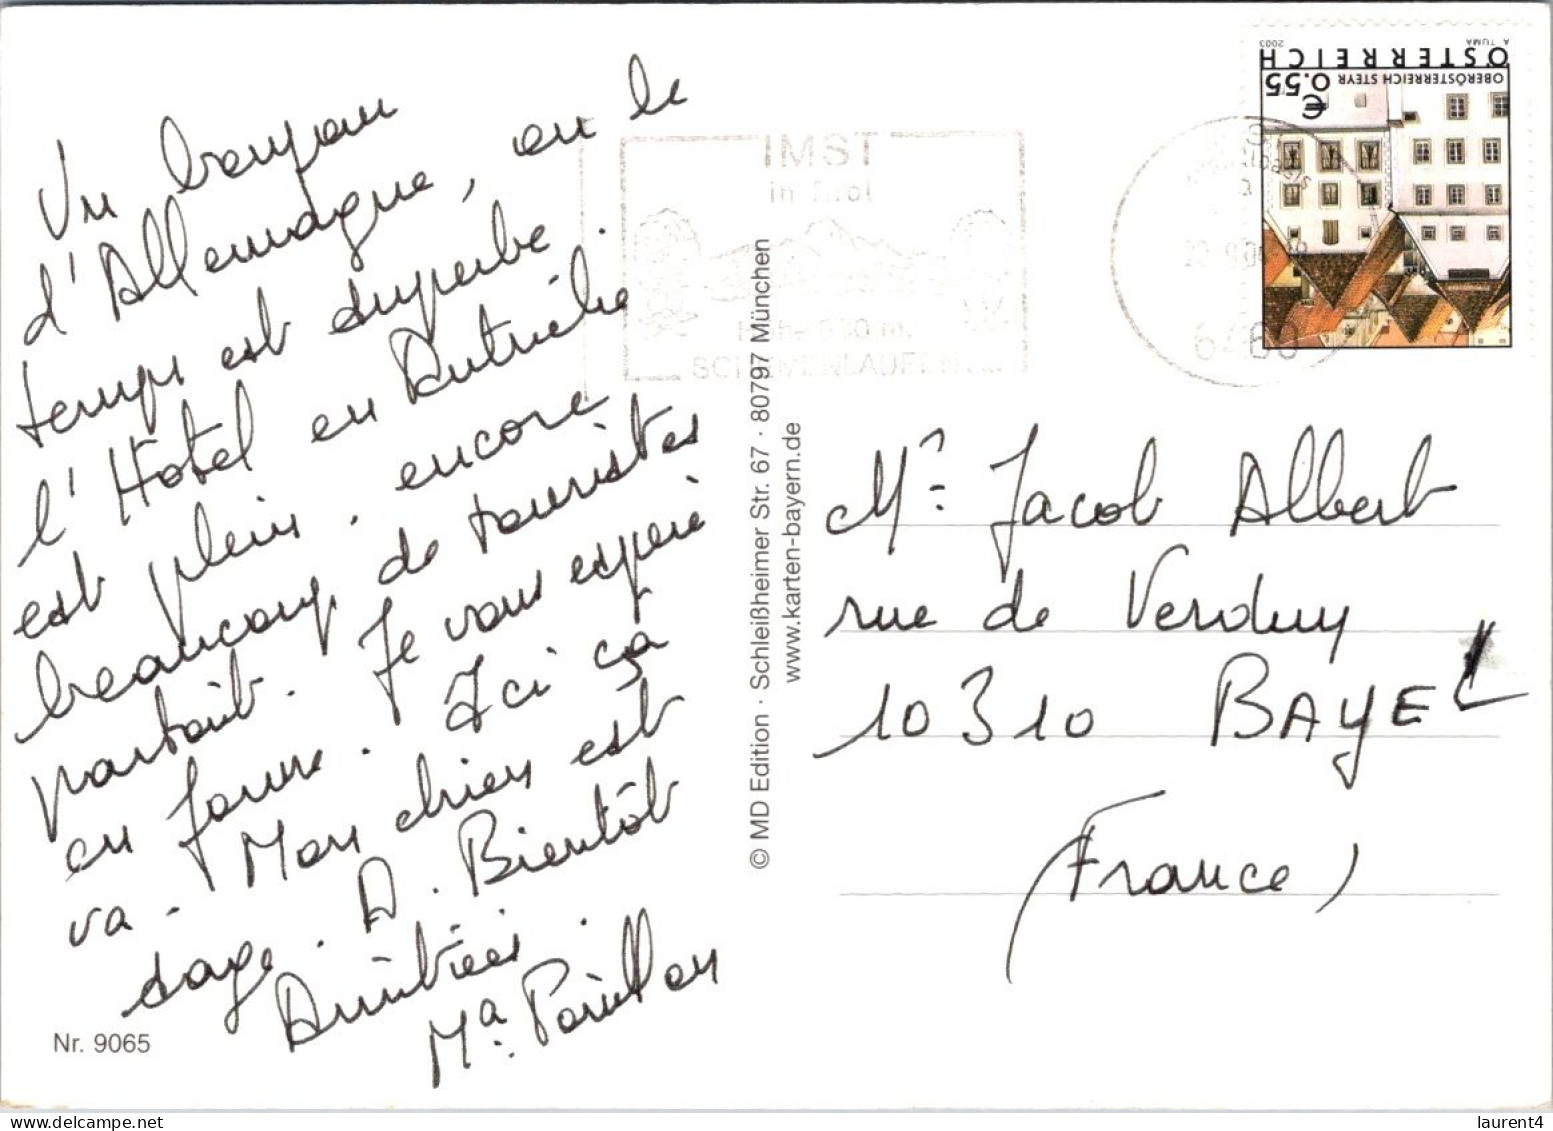 Un bonjour
d'Allemagne, ou le
temps est superbe.
l'Hotel en Autriche
est plein, encore
beaucoup de touristes
partout. Je vous espère
en forme. Ici ça
va. Mon chien est
sage. A. Bientôt
Amitiées.
Ma:
Nr. 9065
© MD Edition · Schleißheimer Str. 67 · 80797 München
www.karten-bayern.de
IMST
in Tirol
SCHEMENLAUFEN
6460
A. TUMA 2003
ÖSTERREICH
OBERÖSTERREICH STEYR
€ 0.55
Mr: Jacob Albert
rue de
10310 BAYEL
(France)
laurent4